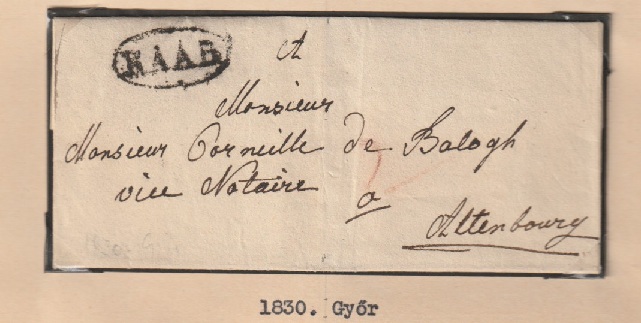 RAAB
A
Monsieur
Monsieur Corneille de Balogh
vice Notaire
a
Altenbourg
1830. Győr